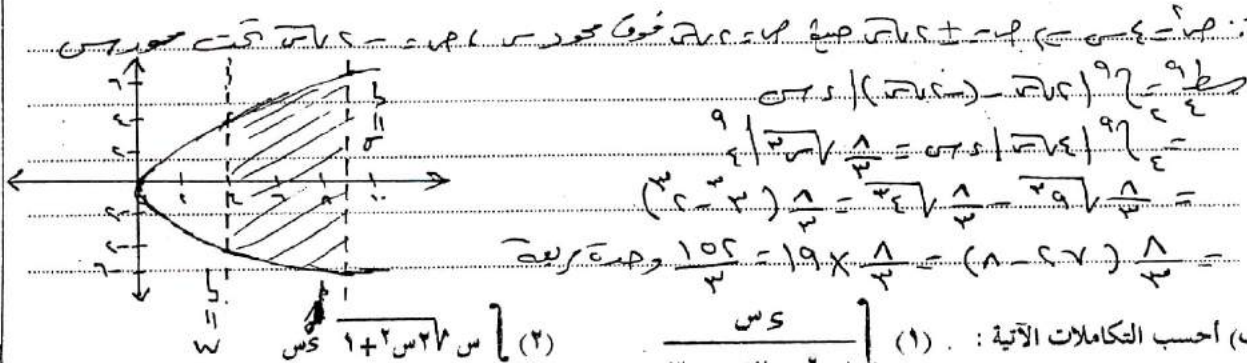 : ص٢ = ٤س ⇒ ص = ± ٢√س ص = ٢√س فوق محور س ، ص = - ٢√س تحت محور س
= ∫٤٩ |٢√س - (-٢√س)| ءس
= ∫٤٩ |٤√س| ءس = ٨/٣ √س٣ |٤٩
= ٨/٣ √٩٣ - ٨/٣ √٤٣ = ٨/٣ (٣٣ - ٢٣)
= ٨/٣ (٢٧ - ٨) = ٨/٣ × ١٩ = ١٥٢/٣ وحدة مربعة
ب) أحسب التكاملات الآتية : (١) ∫ ءس (٢) ∫ س √٢س٢+١ ءس